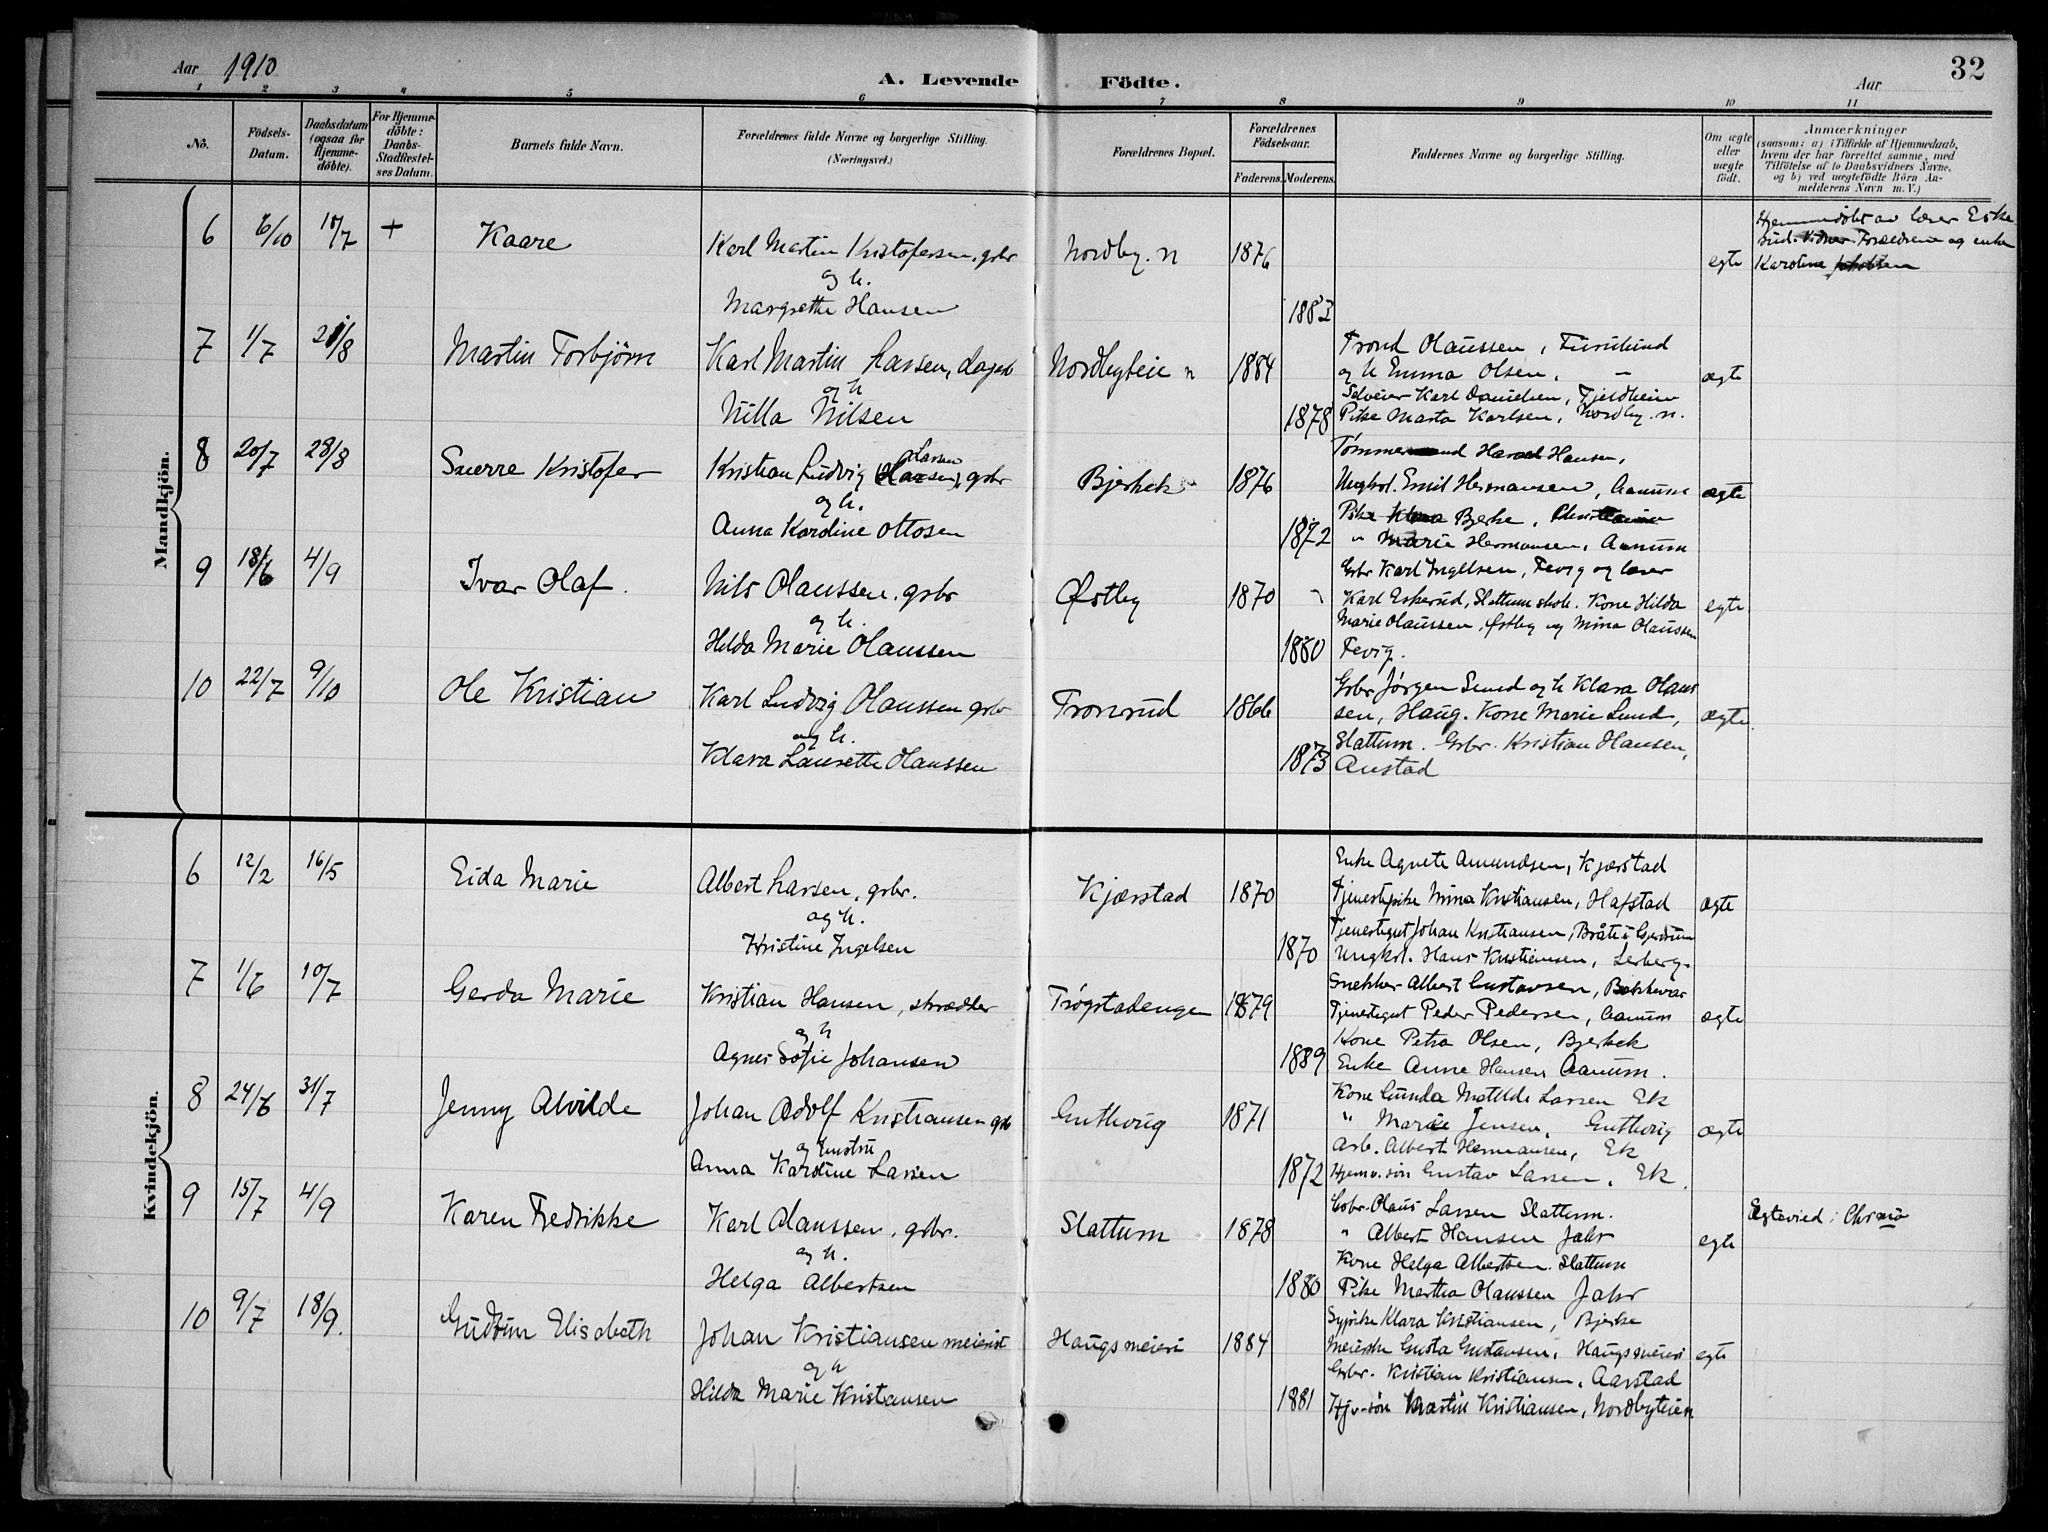 Aar 1910
A. Levende Födte.
Aar
32
1 2 3 4 5 6 7 8 9 10 11
No.
Födsels-Datum.
Daabsdatum (ogsaa for Hjemmedöbte).
For Hjemmedöbte: Daabs-Stadfæstelses Datum.
Barnets fulde Navn.
Forældrenes fulde Navne og borgerlige Stilling. (Næringsvei.)
Forældrenes Bopæl.
Forældrenes Födselsaar.
Faderens. Moderens.
Faddernes Navne og borgerlige Stilling.
Om ægte eller uægte födt.
Anmærkninger
(saasom: a) i Tilfælde af Hjemmedaab, hvem der har forrettet samme, med Tilföielse af to Daabsvidners Navne, og b) ved uægtefödte Börn Anmelderens Navn m. V.)
Mandkjön.
6 6/10 10/7 + Kaare
Karl Martin Kristofersen, gbr
og h.
Margrethe Hansen
Nordby. n 1876
egte
Hjemmedøbt av lærer Eske
rud. Vidner Forældrene og enke
Karoline
7 1/7 21/8 Martin Torbjørn
Karl Martin Larsen, dagarb
og h
Nilla Nilsen
Nordbyteie n 1884
1878
Trond Olaussen, Furulund
og h Emma Olsen, "
Selveier Karl Danielsen, Fjeldheim
Pike Marta Karlsen, Nordby. n.
ægte
8 20/7 28/8 Sverre Kristofer
Kristian Ludvig Larsen, gbr
og h.
Anna Karoline Ottosen
Bjerkek 1876
1872
Tømmermand Harald Hansen,
Ungkrl. Emil Hermansen, Aanum
Pike Klara Bjerke,
" Marie Hermansen, Aanum
ægte
9 18/6 4/9 Ivar Olaf.
Nils Olaussen, gbr
og h.
Hilda Marie Olaussen
Østby 1870
1880
Gbr Karl Ingelsen, Tevig og lærer
Karl Eskerud, Slattum skole. Kone Hilda
Marie Olaussen, Østby og Mina Olaussen
Tevig.
egte
10 22/7 9/10 Ole Kristian
Karl Ludvig Olaussen gbr
og h.
Klara Laurette Olaussen
Tronrud 1866
1873
Gbr Jørgen Lund og h Klara Olaus
sen, Haug. Kone Marie Lund,
Slattum. Gbr. Kristian Hansen,
Anstad
ægte
Kvindekjön.
6 12/2 16/5 Eida Marie
Albert Larsen, gbr.
og h.
Kristine Ingelsen
Kjærstad 1870
1870
Enke Agnete Amundsen, Kjærstad
Tjenestepike Mina Kristiansen, Hafstad
Tjenestegut Johan Kristiansen, Bråte i Gjerdrum
Ungkrl. Hans Kristiansen, Lerberg.
ægte
7 1/6 10/7 Gerda Marie
Kristian Hansen, skrædder
og h
Agnes Sofie Johansen
Trøgstadengen 1879
1889
Snekker Albert Gustavsen, Bakkevar
Tjenestegut Peder Pedersen, Aanum
Kone Petra Olsen, Bjerkek
Enke Anne Hansen Aanum.
ægte
8 24/6 31/7 Jenny Alvilde
Johan Adolf Kristiansen gbr
og hustru
Anna Karoline Larsen
Gutterig 1871
1872
Kone Gunda Matilde Larsen Ek
" Marie Jensen, Gutterig
Arb. Albert Hermansen, Ek
Hjemv. søn Gustav Larsen, Ek.
ægte
9 15/7 4/9 Karen Fredrikke
Karl Olaussen, gbr.
og h.
Helga Albertsen
Slattum 1878
1880
Gbr. Olaus Larsen Slattum.
" Albert Hansen Jahr
Kone Helga Albertsen. Slattum
Pike Martha Olaussen Jahr
egte
Egteviet i Chr.nia
10 9/7 18/9. Gudrun Elisabeth
Johan Kristiansen meierist
og h
Hilda Marie Kristiansen
Haugsmeieri 1884
1881
Sypike Klara Kristiansen, Bjerke
Meierske Gusta Gustavsen, Haugsmeieri
Gbr. Kristian Kristiansen, Aarstad
Hjv. søn Martin Kristiansen, Nordbyteien
egte